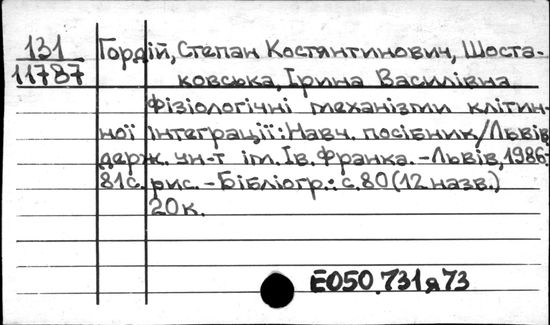 131
11787
Гордій, Степан Костянтинович, Шоста-
ковська, Ірина Василівна
Фізіологічні механізми клітин-
ної інтеграції: Навч. посібник/Львів
держ. ун-т ім. Ів. Франка. - Львів, 1986.-
81с. рис. - Бібліогр.: с. 80 (12 назв.)
20к.
Е050.731я73